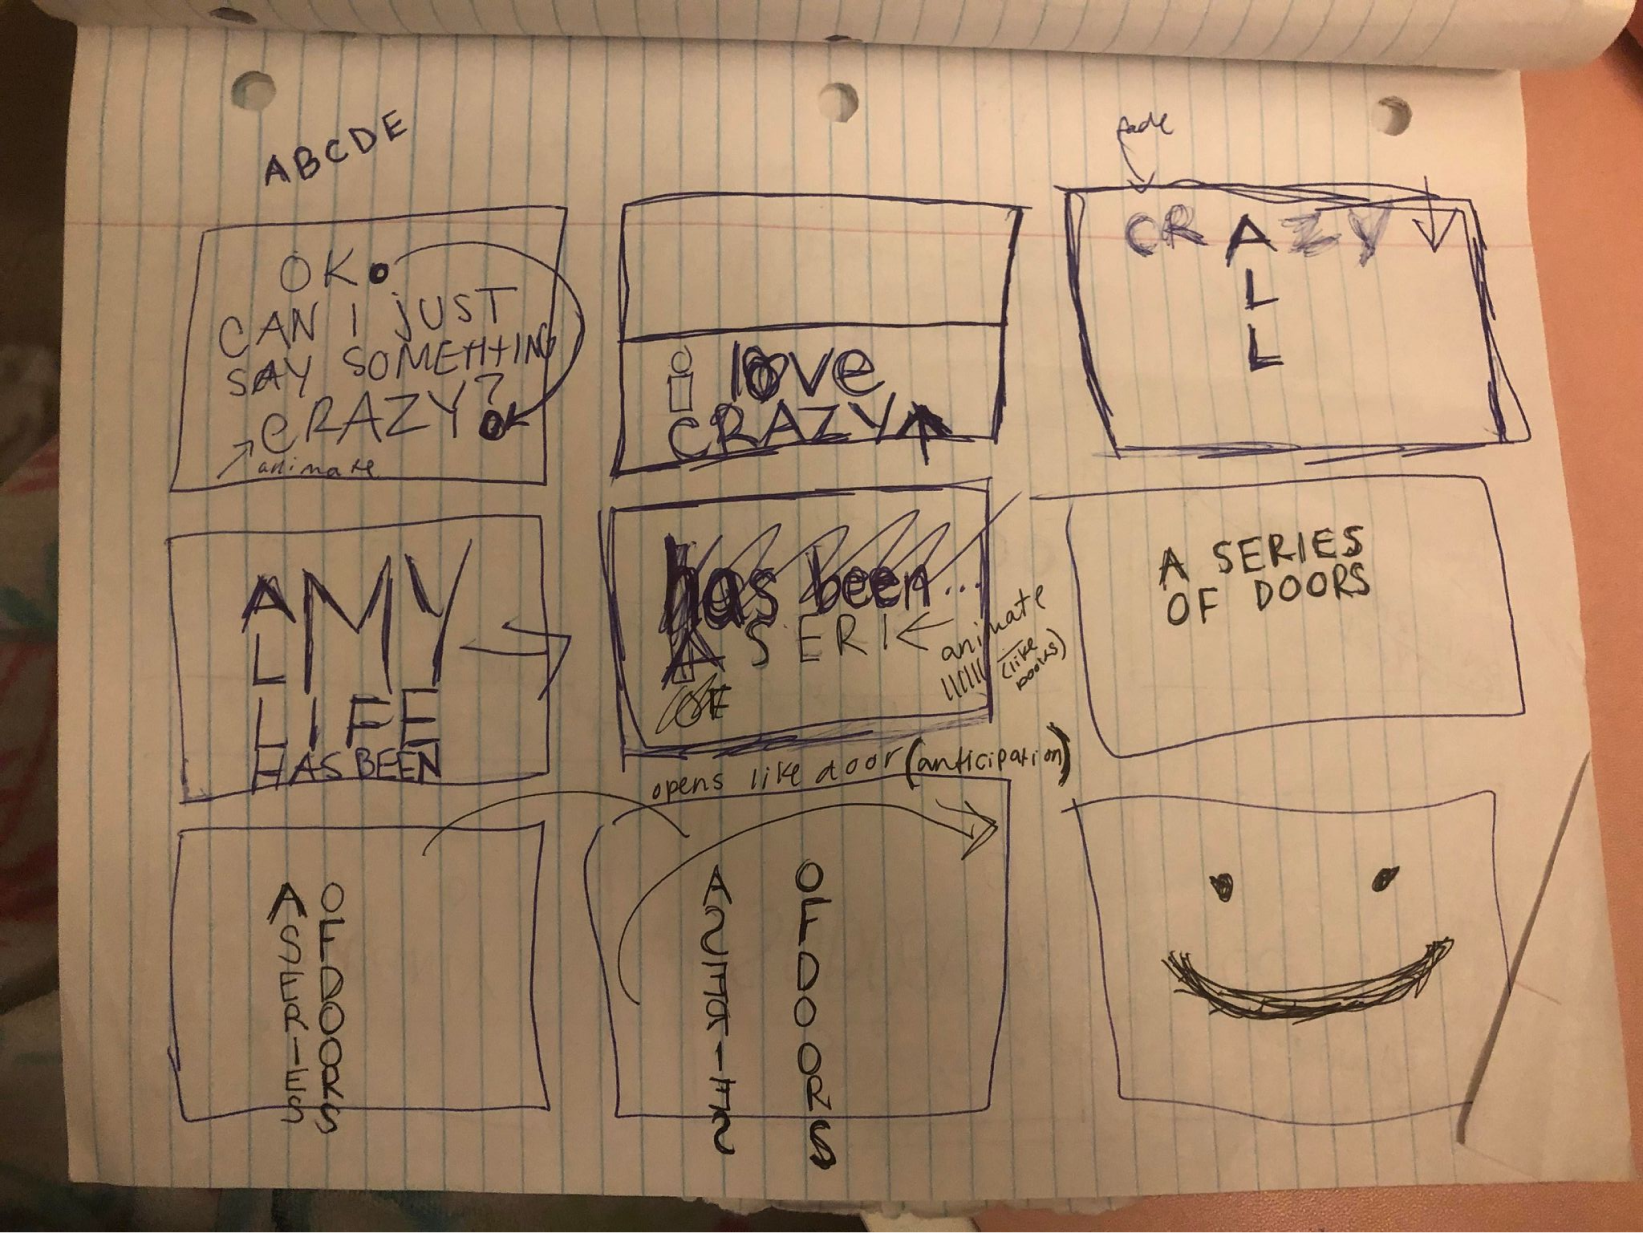 ABCDE
fade
OK.
CAN I jUST
SAY SOMETHING
CRAZY?
animate
i love
CRAZY
CRAZY
L
L
A MY
L
LIFE
HAS BEEN
has been...
A SERI
OF
animate
(like
books)
A SERIES
OF DOORS
opens like door (anticipation)
A SERIES
OF DOORS
A SERIES
OF DOORS